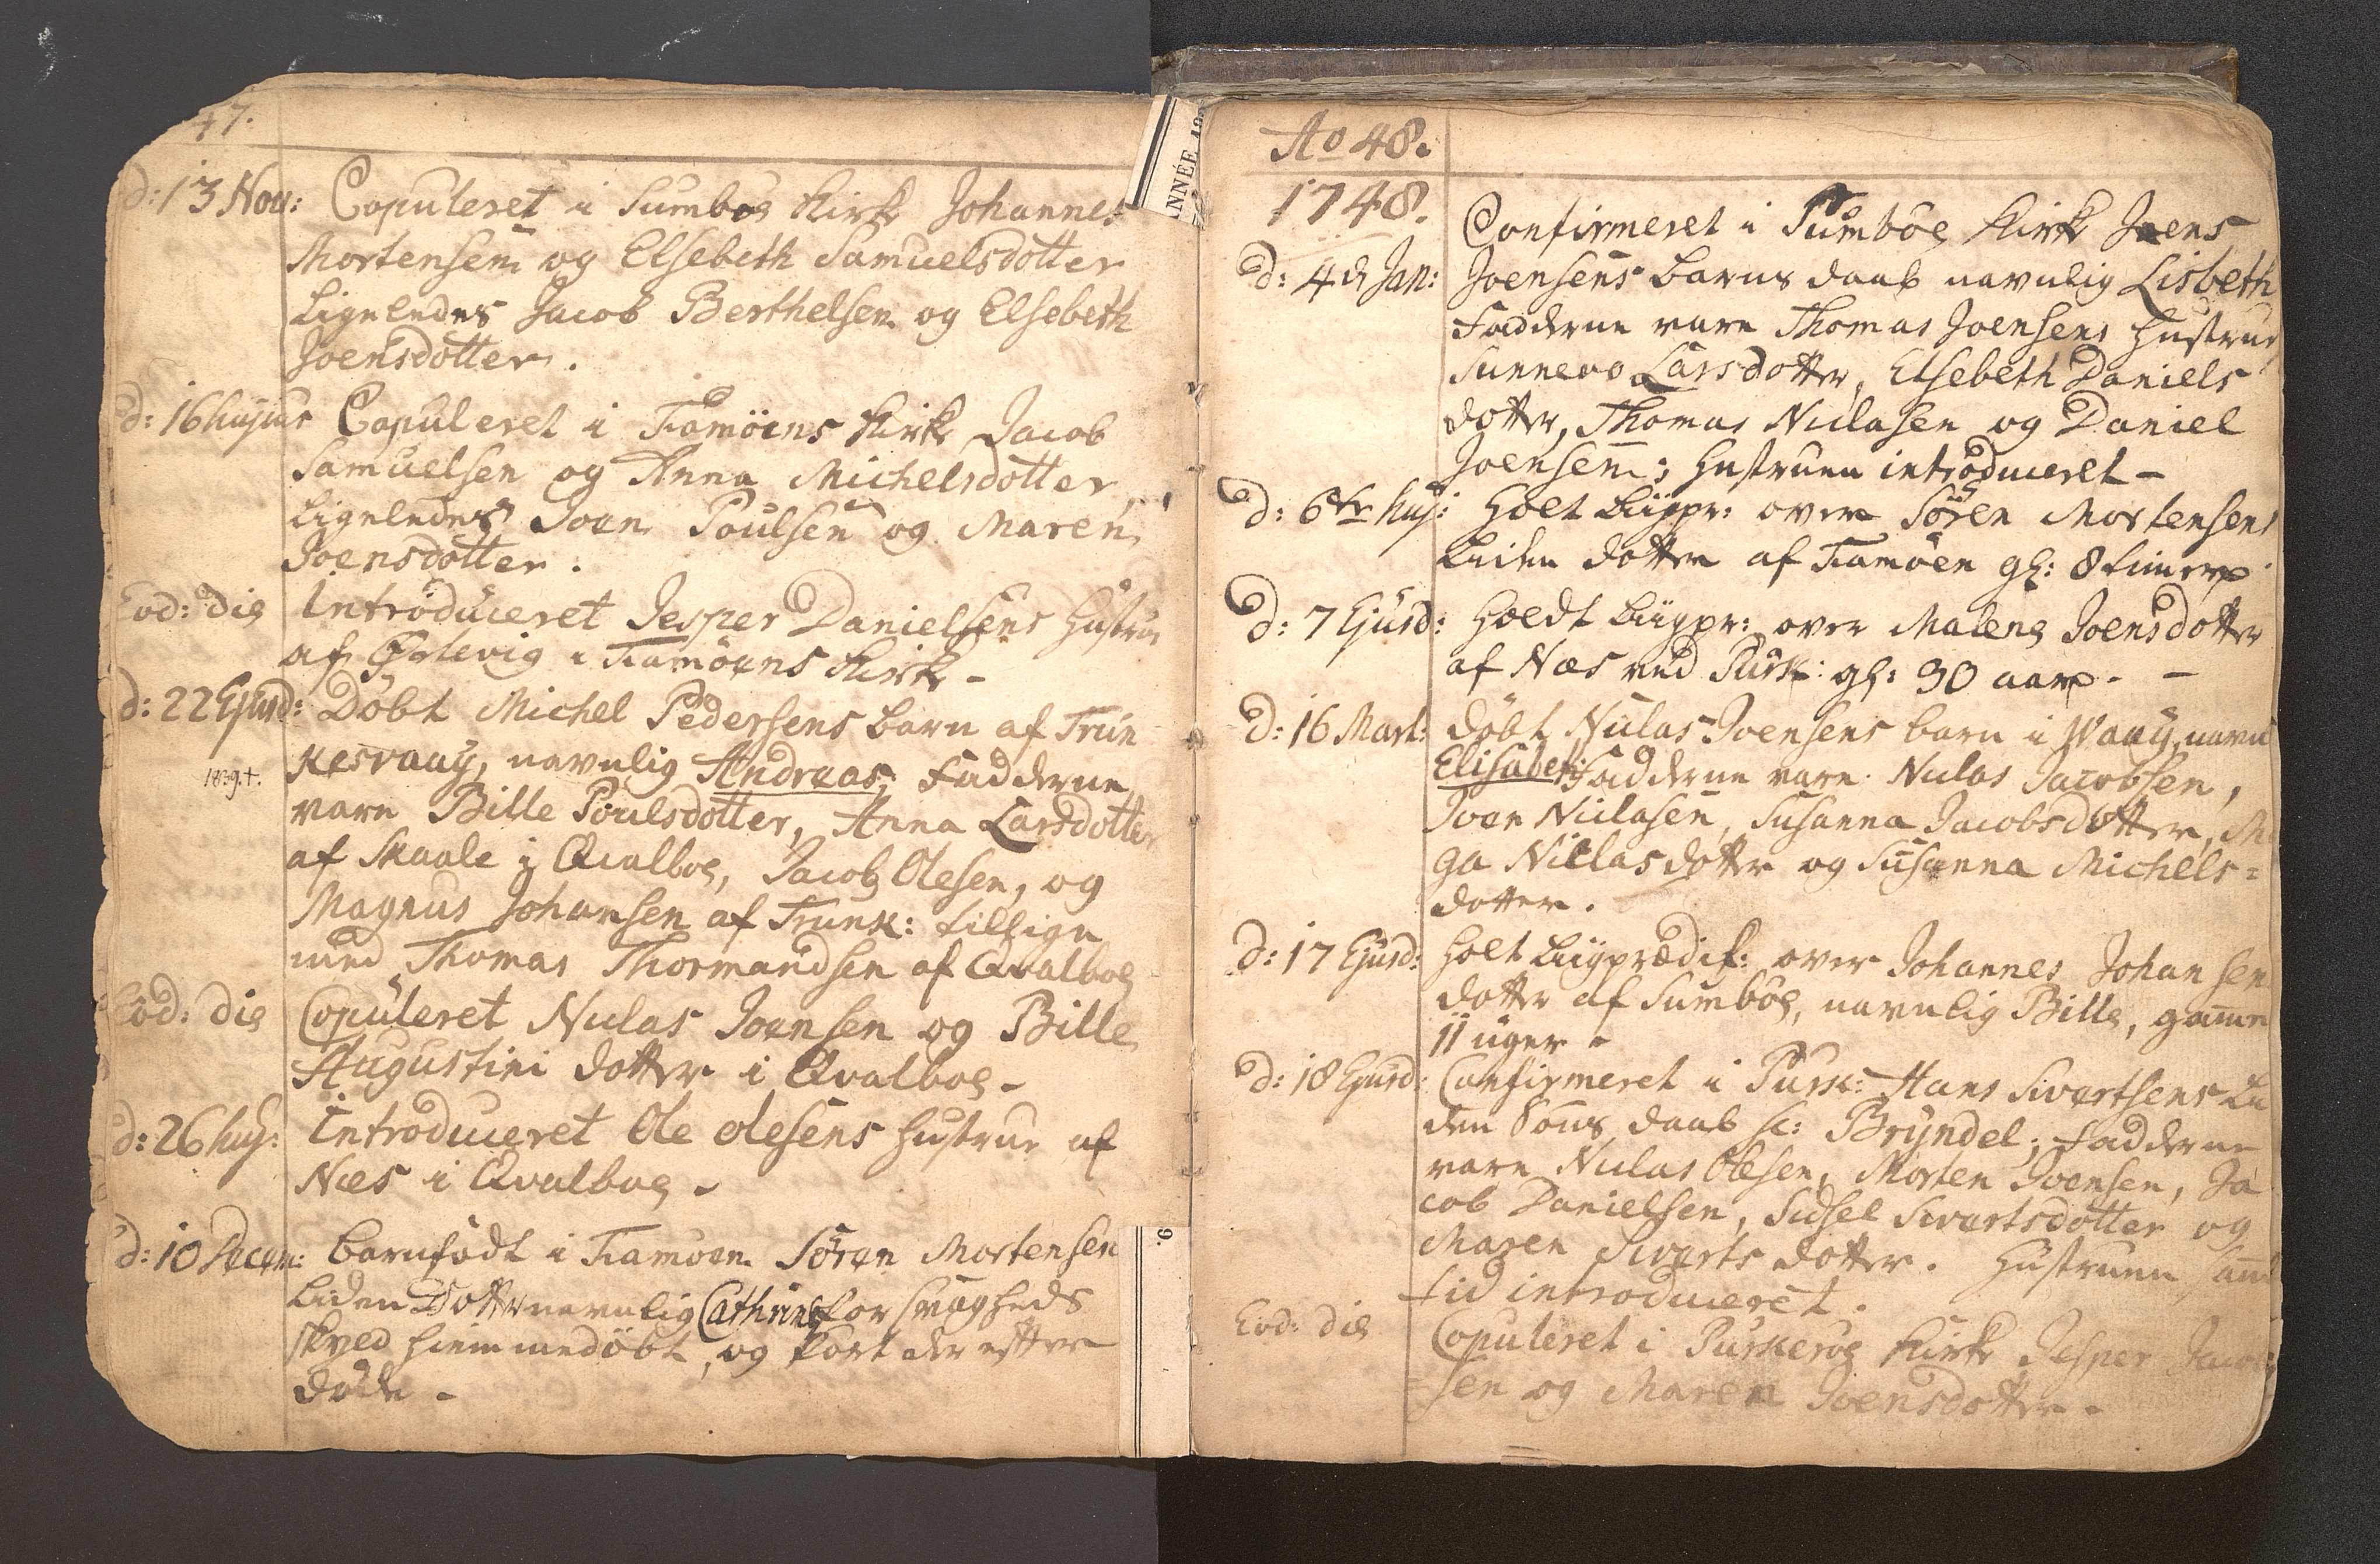 47.
d: 13 Nov: Copuleret i Sumbøe Kirke Johannes
Mortensen og Elsebeth Samuelsdotter
Ligeledes Jacob Berthelsen og Elsebeth
Joensdotter.
d: 16 hujus Copuleret i Framöens Kirke Jacob
Samuelsen og Anna Michelsdotter,
Ligeledes Joen Poulsen og Maren
Joensdotter.
Eod: die Introduceret Jesper Danielsens Hustrue
af Ørdevig i Framöens Kirke -
d: 22 Ejusd: Döbt Michel Pedersens barn af Trun
1839.†. kesvaag, navnlig Andreas; Fadderne
vare Bille Poulsdotter, Anna Larsdotter
af Skaale i Qvalboe, Jacob Olesen, og
Magnus Johansen af Trunk: tillige
med Thomas Thormandsen af Qvalboe
Eod: die Copuleret Niclas Joensen og Bille
Augustini dotter i Qvalboe -
d: 26 huj: Introduceret Ole Olesens Hustrue af
Næs i Qvalboe -
d: 10 Decem: barnfödt i Framöen Sören Mortensen
liden Dotter navnlig Cathrine for svagheds
skyld hiemmedöbt, og kort der efter
döde -
ANNÉE
6.
Ao 48.
1748. Confirmeret i Sumböe Kirke Joens
d: 4 d Jan: Joensens barns daab navnlig Lisbeth
Fadderne vare Thomas Joensens Hustrue
Sunneva Larsdotter, Elsebeth Daniels
dotter, Thomas Niclasen og Daniel
Joensen; Hustruen introduceret -
d: 6te huj: Holt Liigpr: over Sören Mortensens
liden dotter af Framöen gl: 8 timer
d: 7 Ejusd: Holdt Liigpr: over Malene Joensdotter
af Næs ved Pursk: gl: 30 aar. -
d: 16 Mart: döbt Niclas Joensens barn i Waag, navnl
Elisabet: Fadderne vare Niclas Jacobsen,
Joen Niclasen, Susanna Jacobsdotter, M
ga Niclasdotter og Susanna Michels=
dotter.
d: 17 Ejusd: Holt Liigprædik: over Johannes Johansen
dotter af Sumböe, navnlig Bille, gamel
11 uger -
d: 18 Ejusd: Confirmeret i Pursk: Hans Sivertsens Li
den Söns daab sc: Bryndel; Fadderne
vare Niclas Olesen, Morten Joensen, Ja
cob Danielsen, Sidsel Sivertsdotter og
Maren Siverts dotter. Hustruen sam
tid introduceret.
Eod: die Copuleret i Purkeröe Kirke Jesper Jacob
sen og Maren Joensdotter -